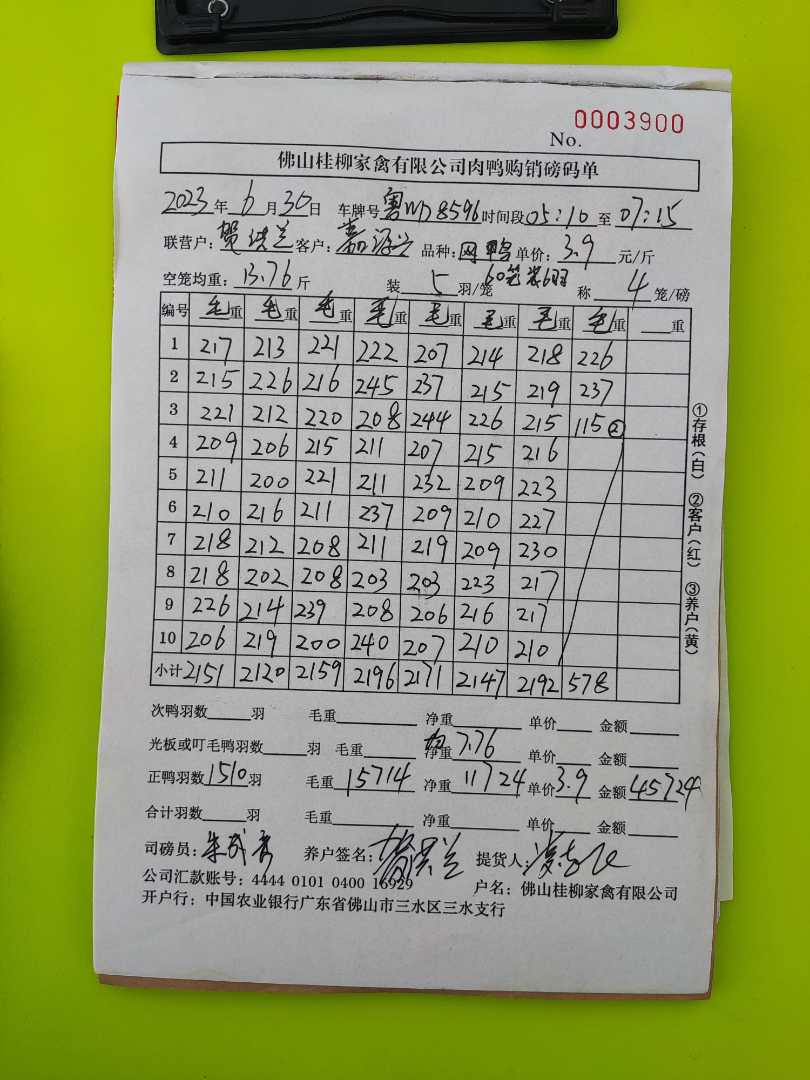 0003900
No.
佛山桂柳家禽有限公司肉鸭购销磅码单
2023年6月30日 车牌号粤WD8596时间段05:10至07:15
联营户: 贺洪兰 客户: 嘉源兴 品种: 网鸭 单价: 3.9元/斤
空笼均重: 13.76斤 装5羽/笼 60笼装6羽 称4笼/磅
编号 毛重 毛重 毛重 毛重 毛重 毛重 毛重 毛重 重
1 217 213 221 222 207 214 218 226
2 215 226 216 245 237 215 219 237
3 221 212 220 208 244 226 215 115②
4 209 206 215 211 207 215 216
5 211 200 221 211 232 209 223
6 210 216 211 237 209 210 227
7 218 212 208 211 219 209 230
8 218 202 208 203 203 223 217
9 226 214 239 208 206 216 217
10 206 219 200 240 207 210 210
小计 2151 2120 2159 2196 2171 2147 2192 578
①存根(白) ②客户(红) ③养户(黄)
次鸭羽数 羽 毛重 净重 单价 金额
光板或叮毛鸭羽数 羽 毛重 净重 均7.76 单价 金额
正鸭羽数1510羽 毛重15714 净重11724 单价3.9 金额45724
合计羽数 羽 毛重 净重 单价 金额
司磅员: 养户签名: 提货人:
公司汇款账号: 4444 0101 0400 16929 户名: 佛山桂柳家禽有限公司
开户行: 中国农业银行广东省佛山市三水区三水支行